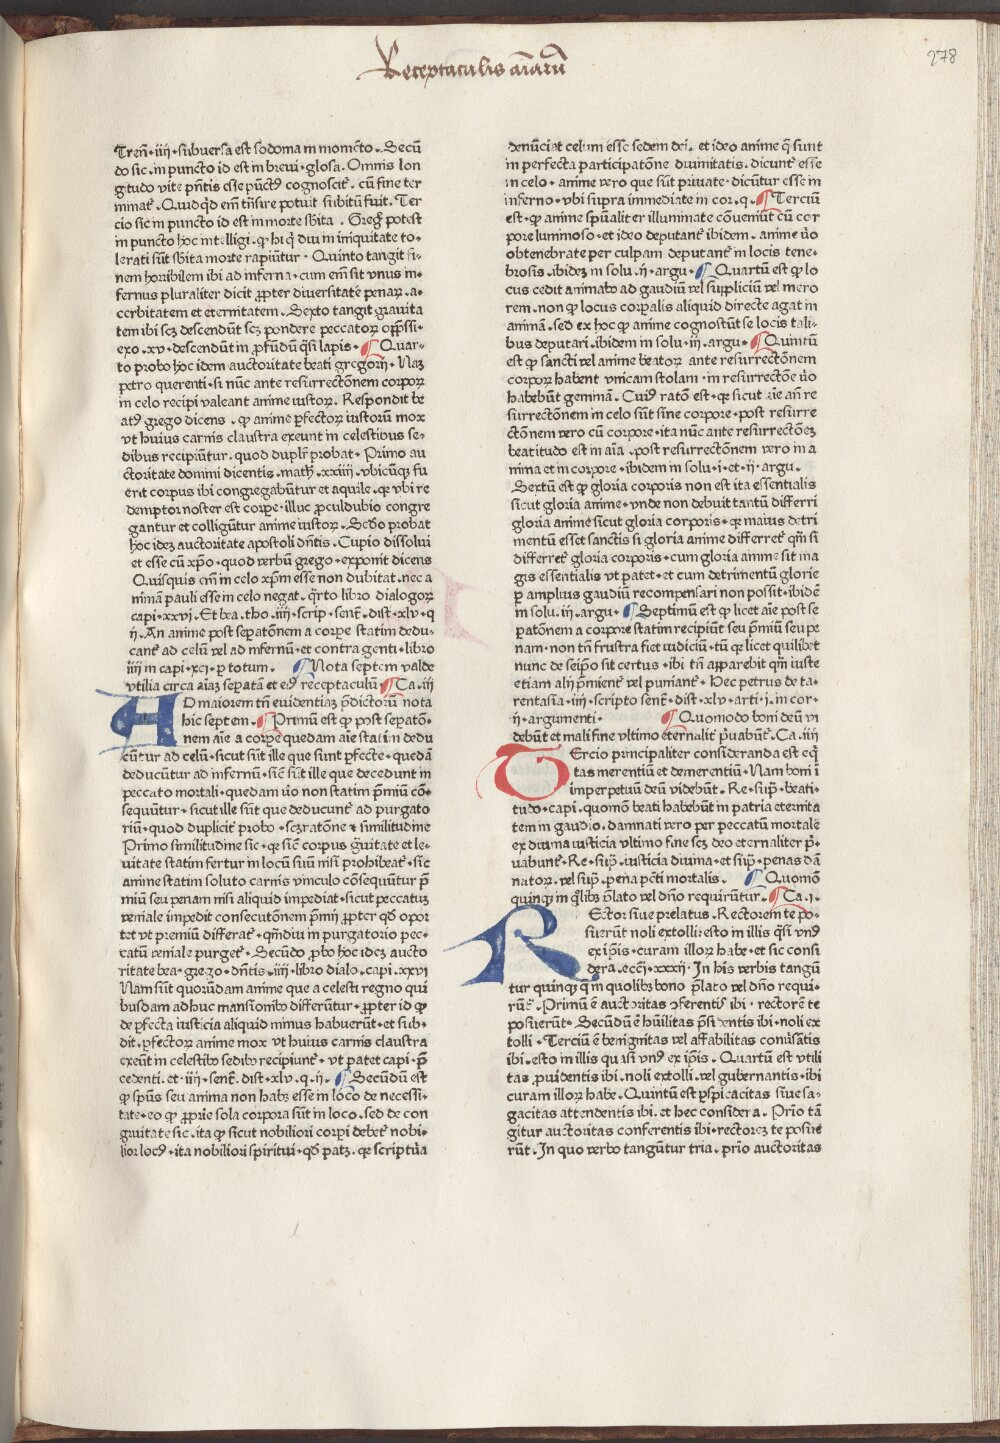 Receptaculis aīarū
278
Treñ·iiij·subuersa est sodoma in momēto. Secū
do sic.in puncto id est in breui·glosa. Omnis lon
gitudo vite p̄ntis esse pūctꝰ cognoscit̄. cū fine ter
minat̄. Quidqd em̄ trāsire potuit subitū fuit. Ter
cio sic in puncto id est in morte sbita. Greḡ potest
in puncto hoc intelligi·ꝙ hi q̄ diu in iniquitate to-
lerati sūt sbita morte rapiūtur. Quinto tangit fi-
nem horribilem ibi ad inferna·cum em̄ sit vnus in-
fernus pluraliter dicit ꝓpter diuersitatē penaꝝ.a-
cerbitatem et eternitatem. Sexto tangit grauita
tem ibi scꝫ descendūt scꝫ pondere peccatoꝝ opp̄ssi-
exo.xv·descendūt in ꝓfūdū q̄si lapis· ¶Quar-
to probo hoc idem auctoritate beati gregorij·Naꝫ
petro querenti·si nūc ante resurrectōnem corpoꝝ
in celo recipi valeant anime iustoꝝ. Respondit be
atꝰ grego dicens. ꝙ anime p̄fectoꝝ iustorū mox
vt huius carnis claustra exeunt in celestibus se-
dibus recipiūtur. quod duplr̄ probat· Primo au
ctoritate domini dicentis.math̄.xxiiij.vbicūqꝫ fu
erit corpus ibi congregabūtur et aquile.qꝛ vbi re
demptor noster est corꝑe·illuc ꝓculdubio congre
gantur et colligūtur anime iustoꝝ. Scdo probat
hoc idez auctoritate apostoli dn̄tis. Cupio dissolui
et esse cū xp̄o·quod verbū grego·exponit dicens
Quisquis em̄ in celo xp̄m esse non dubitat.nec a
nimā pauli esse in celo negat. q̄rto libro dialogoꝝ
capi·xxvi. Et bea.tho.iiij·scrip·sent̄.dist·xlv·q
ij.An anime post sepatōnem a corꝑe statim dedu-
cant̄ ad celū vel ad infernū·et contra genti·libro
iiij in capi·xci·p totum. ¶Nota septem valde
vtilia circa aīaꝫ seꝑatā et eiꝰ receptaculū ¶Ca.iij
AD maiorem tn̄ euidentiaꝫ p̄dictorū nota
hic septem. ¶Primū est ꝙ post seꝑatō-
nem aīe a corꝑe quedam aīe statim dedu
cūtur ad celū·sicut sūt ille que sunt ꝑfecte·quedā
deducūtur ad infernū·sic̄ sūt ille que decedunt in
peccato mortali·quedam ūo non statim p̄miū cō-
sequūtur·sicut ille sūt que deducunt̄ ad purgato
riū·quod duplicit̄ probo·scꝫ ratōne ⁊ similitudine
Primo similitudine sic·qꝛ sic̄ corpus g̈uitate et le-
uitate statim fertur in locū suū nisi prohibeat̄·sic
anime statim soluto carnis vinculo cōsequūtur p̄
miū seu penam nisi aliquid impediat·sicut peccatuꝫ
veniale impedit consecutōnem p̄mij ꝓpter qd̄ opor
tet vt premiū differat̄·qm̄diu in purgatorio pec-
catū veniale purget̄. Secūdo ꝓbo hoc idez aucto
ritate bea·grego·dn̄tis.iiij·libro dialo.capi.xxvi
Nam sūt quorūdam anime que a celesti regno qui
busdam adhuc mansionibꝰ differūtur. ꝓpter id ꝙ
de ꝑfecta iusticia aliquid minus habuerūt·et sub-
dit.ꝑfectoꝝ anime mox vt huius carnis claustra
exeūt in celestibꝰ sedibꝰ recipiunt̄·vt patet capi·p̄
cedenti.et·iiij·sent̄.dist·xlv.q.ij. ¶Secūdū est
ꝙ spūs seu anima non habꝫ esse in loco de necessi-
tate·eo ꝙ ꝓprie sola corpora sūt in loco.sed de con
gruitate sic.ita ꝙ sicut nobiliori corꝑi debet̄ nobi-
lior locꝰ·ita nobiliori spiritui·qd̄ patꝫ.qꝛ scriptūa
denūciat celum esse sedem dei. et ideo anime q̄ sunt
in perfecta participatōne diuinitatis. dicunt̄ esse
in celo·anime vero que sūt priuate·dicūtur esse in
inferno·vbi supra immediate in cor.q. ¶Terciū
est·ꝙ anime spūaliter illuminate cōueniūt cū cor
pore luminoso·et ideo deputant̄ ibidem.anime ūo
obtenebrate per culpam deputant̄ in locis tene-
brosis.ibideꝫ in solu·ij·argu· ¶Quartū est ꝙ lo
cus cedit animabꝰ ad gaudiū vel suppliciū vel mero
rem.non ꝙ locus corꝑalis aliquid directe agat in
animā.sed ex hoc ꝙ anime cognoscūt se locis tali-
bus deputari.ibidem in solu·iij.argu· ¶Quintū
est ꝙ sancti vel anime beatoꝝ ante resurrectōnem
corpoꝝ habent vnicam stolam·in resurrectōe ūo
habebūt geminā. Cuiꝰ ratō est·qꝛ sicut aīe an̄ re
surrectōnem in celo sūt sine corpore·post resurre
ctōnem vero cū corpore·ita nūc ante resurrectōeꝫ
beatitudo est in aīa.post resurrectōnem vero in a
nima et in corpore·ibidem in solu·i·et·ij·argu.
Sextū est ꝙ gloria corporis non est ita essentialis
sicut gloria anime·vnde non debuit tantū differri
gloria anime sicut gloria corporis·qꝛ maius detri
mentū esset sanctis si gloria anime differret̄ qm̄ si
differret̄ gloria corporis·cum gloria anime sit ma
gis essentialis vt patet·et cum detrimentū glorie
ꝑ amplius gaudiū recompensari non possit·ibidē
in solu.iij.argu· ¶Septimū est ꝙ licet aīe post se
ꝑatōnem a corpore statim recipiūt seu p̄miū seu pe
nam·non tn̄ frustra fiet iudiciū·tū qꝛ licet quilibet
nunc de seip̄o sit certus·ibi tn̄ apparebit qm̄ iuste
etiam alij p̄mient̄ vel puniant̄· Hec petrus de ta-
rentasia·iiij·scripto sent̄·dist·xlv·arti·i·in cor-
ij·argumenti· ¶Quomodo boni deū vi
debūt et mali fine vltimo eternalit̄ p̄uabūt̄. Ca.iiij
TErcio principaliter consideranda est eq̄
tas merentiū et dementiū·Nam boni ī
imperpetuū deū videbūt. Re·sup̄·beati-
tudo·capi.quomō beati habebūt in patria eternita
tem in gaudio.damnati vero per peccatū mortale
ex diuina iusticia vltimo fine scꝫ deo eternaliter p̄-
uabunt̄·Re·sup̄.iusticia diuina·et sup̄·penas dā
natoꝝ.vel sup̄.pena pct̄i mortalis. ¶Quomō
quinqꝫ in q̄libꝫ p̄lato vel dn̄o requirūtur. ¶Ca.i.
REctor siue prelatus. Rectorem te po-
suerūt noli extolli·esto in illis q̄si vnꝰ
ex ip̄is·curam illoꝝ habe·et sic consi
dera.ecc̄i·xxxij· In his verbis tangū
tur quinqꝫ q̄ in quolibꝫ bono p̄lato vel dn̄o requi-
rūt̄. Primū ē auctoritas ꝯferentis ibi·rectorē te
posuerūt· Secūdū ē hūilitas p̄sidentis ibi·noli ex
tolli·Terciū ē benignitas vel affabilitas cōuersātis
ibi.esto in illis quasi vnꝰ ex ip̄is. Quartū est vtili
tas ꝓuidentis ibi.noli extolli.vel gubernantis·ibi
curam illoꝝ habe·Quintū est ꝑspicacitas siue sa-
gacitas attendentis ibi.et hec considera. Prio tā
gitur auctoritas conferentis ibi·rectoreꝫ te posue
rūt. In quo verbo tangūtur tria. prio auctoritas